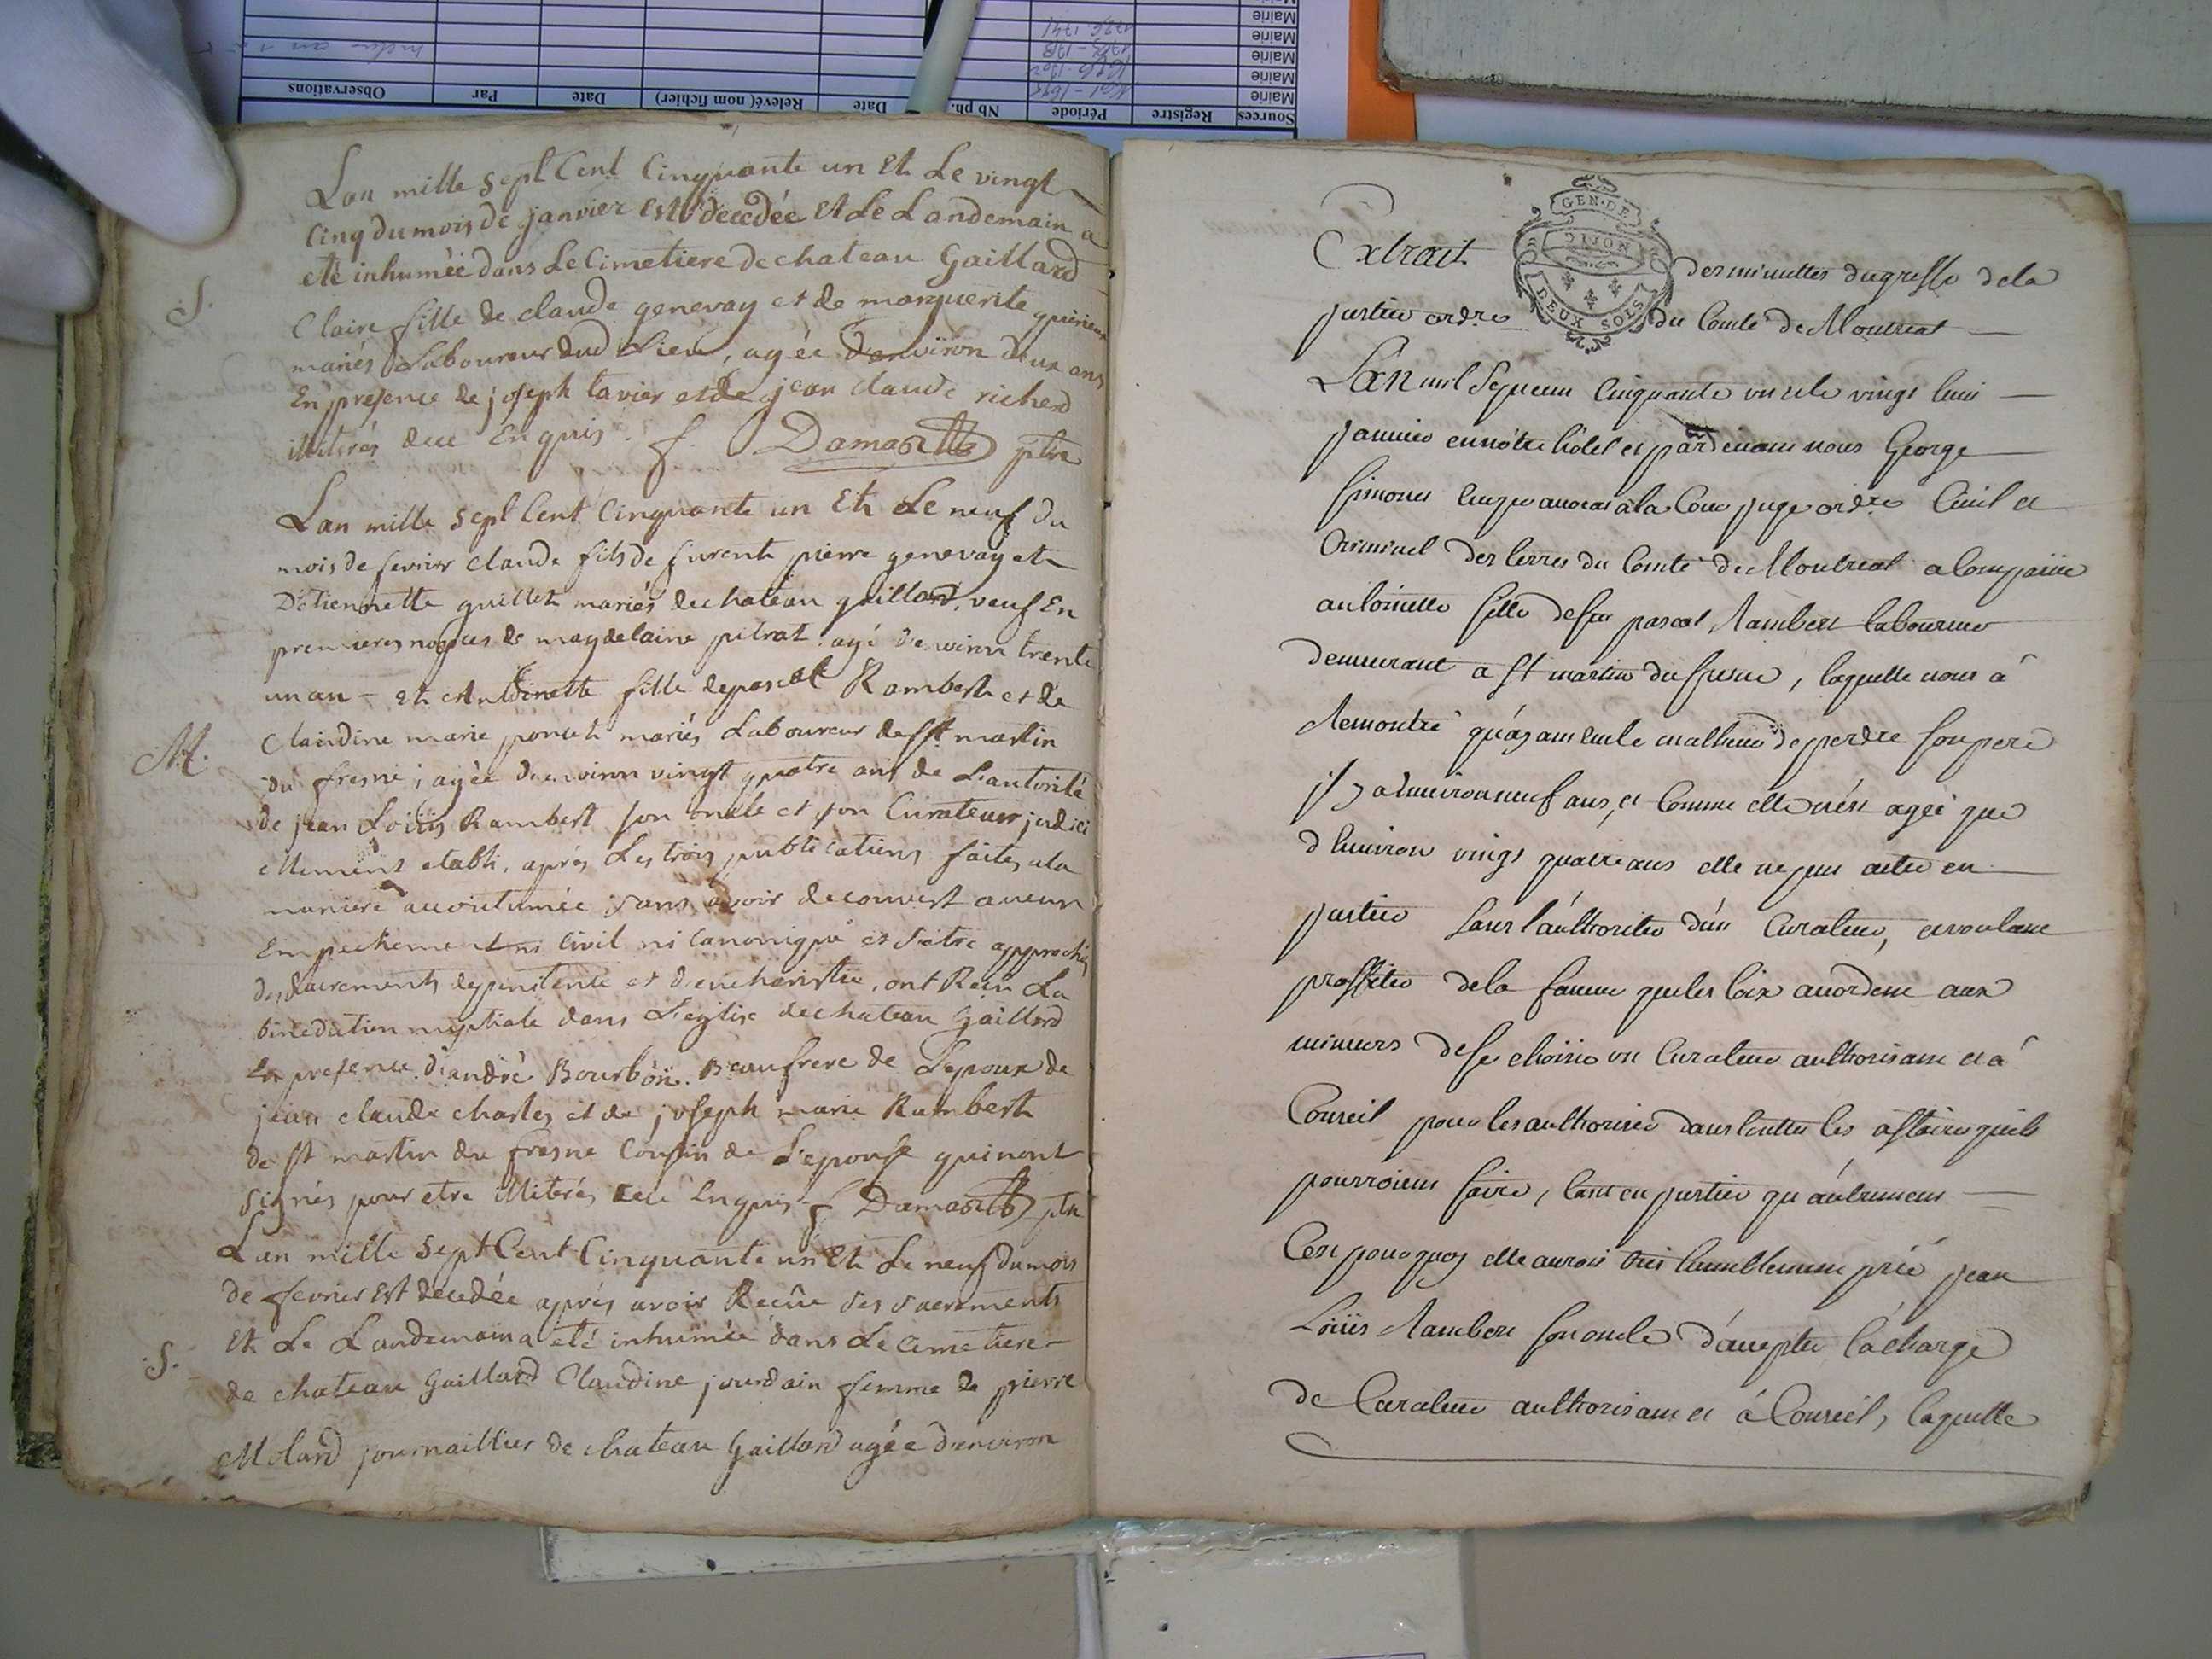 Sources Registre Période Nb ph. Date Relevé (nom fichier) Date Par Observations
Mairie
Mairie
Mairie
Mairie
Mairie
Lan mille sept Cent Cinquante un Et Le vingt
Cinq du mois de janvier est decedée et Le Landemain a
eté inhumée dans Le Cimetiere de chateau Gaillard
S.
Claire fille de claude genevay et de marguerite
mariés Laboureur dud Lieu, agée denviron deux ans
En presence de joseph tavier et de jean claude richerd
illiterés deue Enquis. f. Damas ptre
Lan mille sept Cent Cinquante un Et Le neuf du
mois de fevrier claude fils de furent pierre genevay et
D'etiennette guillet mariés de chateau gaillard, veuf En
premieres nopces de magdelaine pitrat agé denviron trente
un an - et Antoinette fille de pascal Rambert et de
M.
Claudine marie poncet mariés Laboureur de St martin
du fresne, agée denviron vingt quatre ans de L'autorité
de jean Loüis Rambert son oncle et son Curateur judici
ellement etabli, aprés Les trois publications faites a la
maniere accoutumée sans avoir decouvert aucun
Empechement ni Civil ni Canonique et s'etre approchés
des sacrements de penitence et d'eucharistie, ont Reçu La
benediction nuptiale dans L'eglise de chateau Gaillard
En presence d'andré Bourbon. Beaufrere de L'epoux de
jean claude charles et de joseph marie Rambert
de st martin du fresne Cousin de L'epouse qui n'ont
signés pour etre illiterés deue Enquis f Damas ptre
Lan mille Sept Cent Cinquante un Et Le neuf du mois
de fevrier Est decedée aprés avoir Reçüe ses sacrements
Et Le Landemain a eté inhumée dans Le Cimetiere
S.
de chateau Gaillard Claudine jourdain femme de pierre
Molard journaillier de chateau Gaillard agée d'environ
GEN·DE
DIJON
DEUX SOLS
Extrait des minuttes du greffe de la
justice ordre du Comté de Montreal
L'an mil Sept cent Cinquante un et le vingt huit
janvier en nôtre hôtel et pardevant nous George
Simonet avocat a la Cour juge ordre Civil et
Criminel des terres du Comté de Montreal a Comparüe
antoinette fille de feu pascal Rambert laboureur
demeurant a St martin du fresne, laquelle nous à
Remontré qu'ayant eu le malheur de perdre son pere
il y a denviron neuf ans, et Comme elle n'est agée que
d'Environ vingt quatre ans elle ne peut ester en
justice sans l'authorité d'un Curateur, et voulant
proffiter de la faveur que les loix accordent aux
mineurs de se choisir un Curateur authorisant et à
Conseil pour les authoriser dans touttes les affaires quils
pourroient faire, tant en justice qu'autrement
C'est pourquoy elle auroit très humblement prié jean
Loüis Rambert son oncle d'accepter la charge
de Curateur authorisant et à Conseil, laquelle